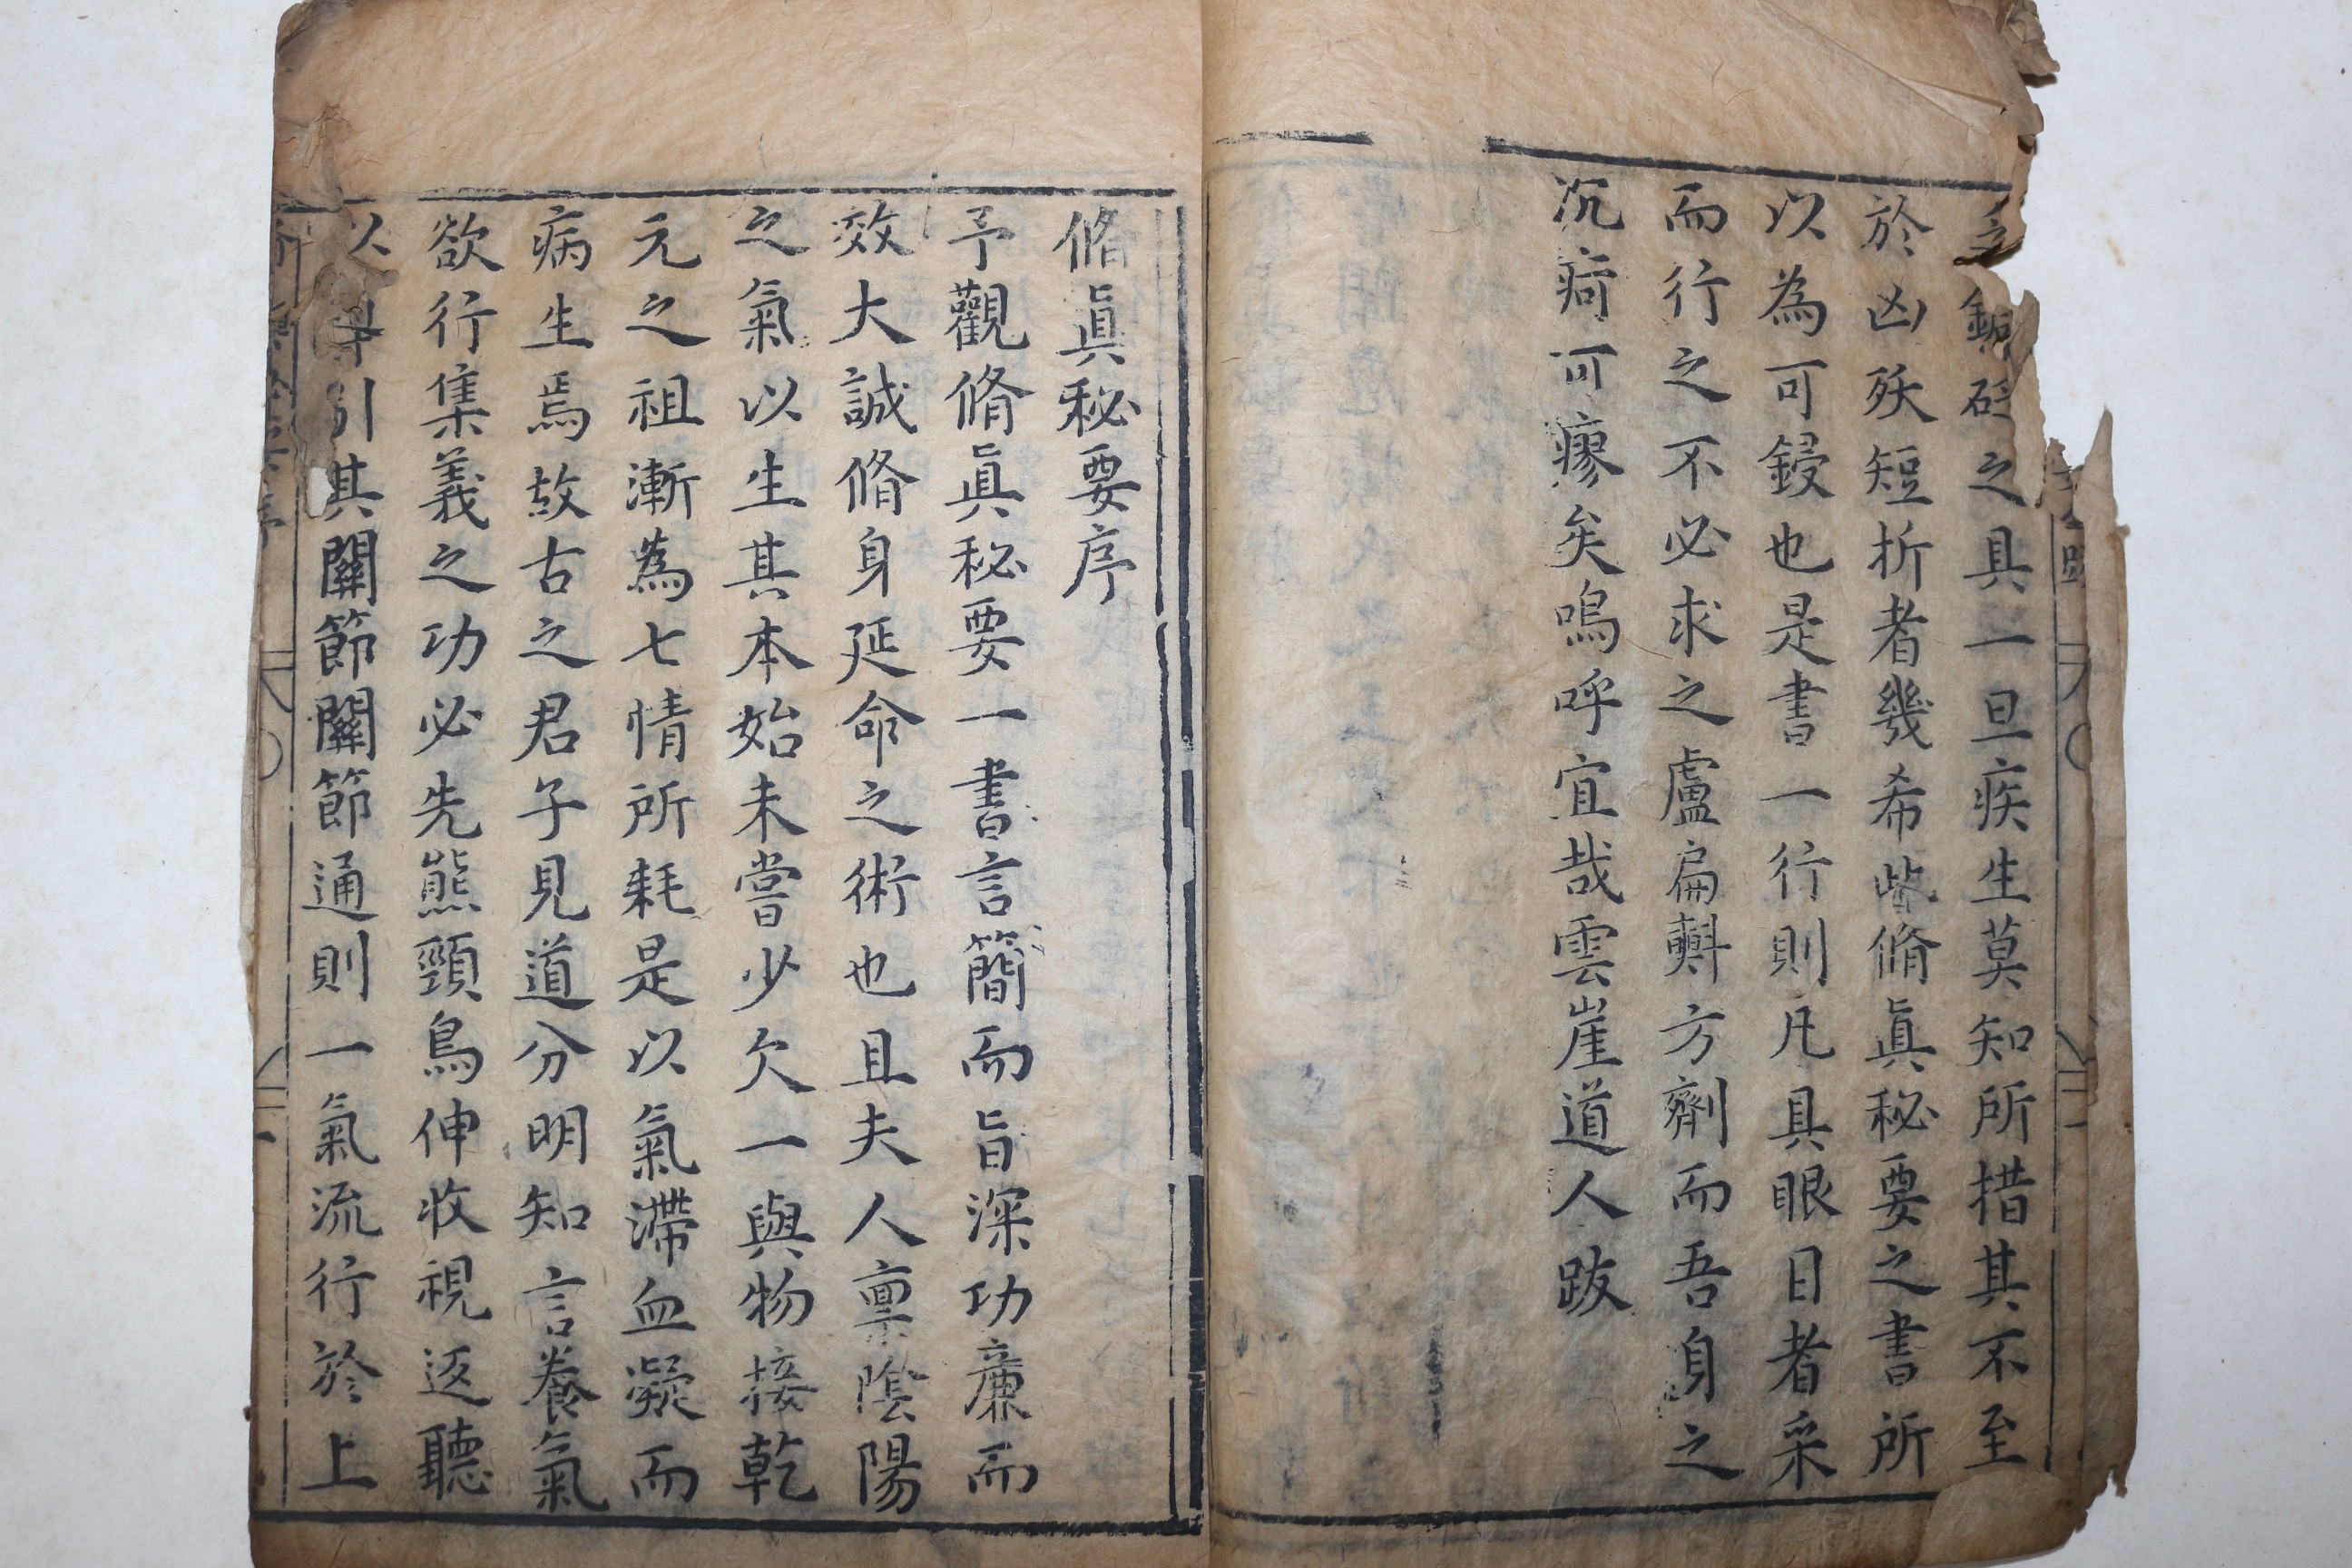 之鍼砭之具一旦疾生莫知所措其不至
於凶殀短折者幾希些脩眞秘要之書所
以為可鋟也是書一行則凡具眼目者采
而行之不必求之盧扁𣂏方劑而吾身之
沉痾可瘳矣嗚呼宜哉雲崖道人跋
脩眞秘要序
予觀脩眞秘要一書言簡而旨深功亷而
效大誠脩身延命之術也且夫人禀陰陽
之氣以生其本始未嘗少欠一與物接乾
元之祖漸為七情所耗是以氣滯血凝而
病生焉故古之君子見道分明知言養氣
欲行集義之功必先熊頸鳥伸收視返聽
以導引其關節關節通則一氣流行於上